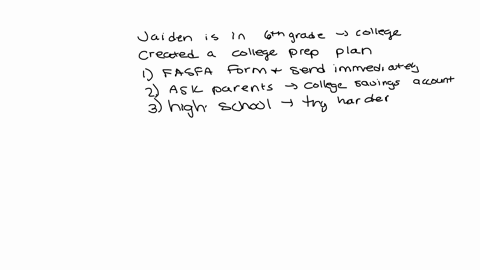 Jaiden is in 6th grade → college
Created a college prep plan
1) FASFA form + send immediately
2) ASK parents → college savings account
3) high school → try harder